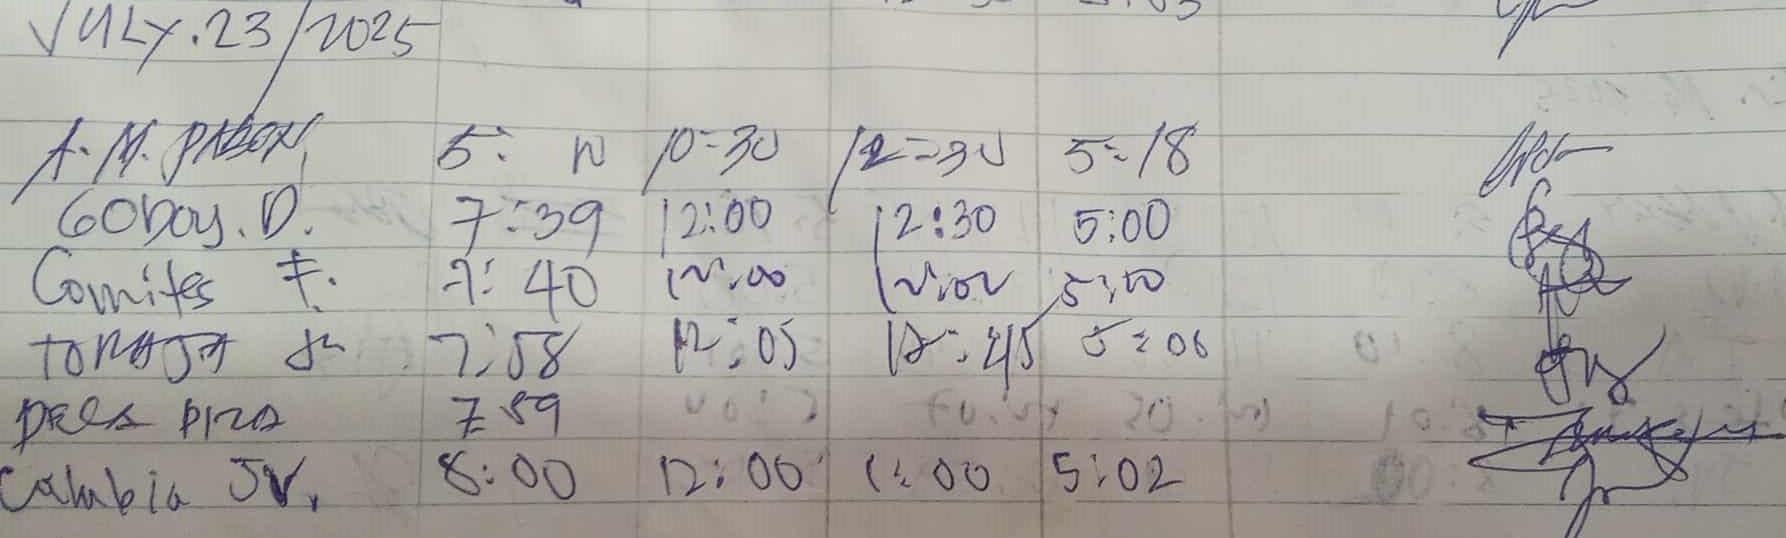 JULY.23/2025
A.M. PABON 5: 10 10=30 12=30 5=18
GODOY. D. 7:39 12:00 12:30 5:00
Comites F. 7:40 12:00 12:00 5:00
TORAJA Jr 7:58 12:05 12:45 5:06
DELA PIZA 7:59
Calubia Jr. 8:00 12:00 1:00 5:02